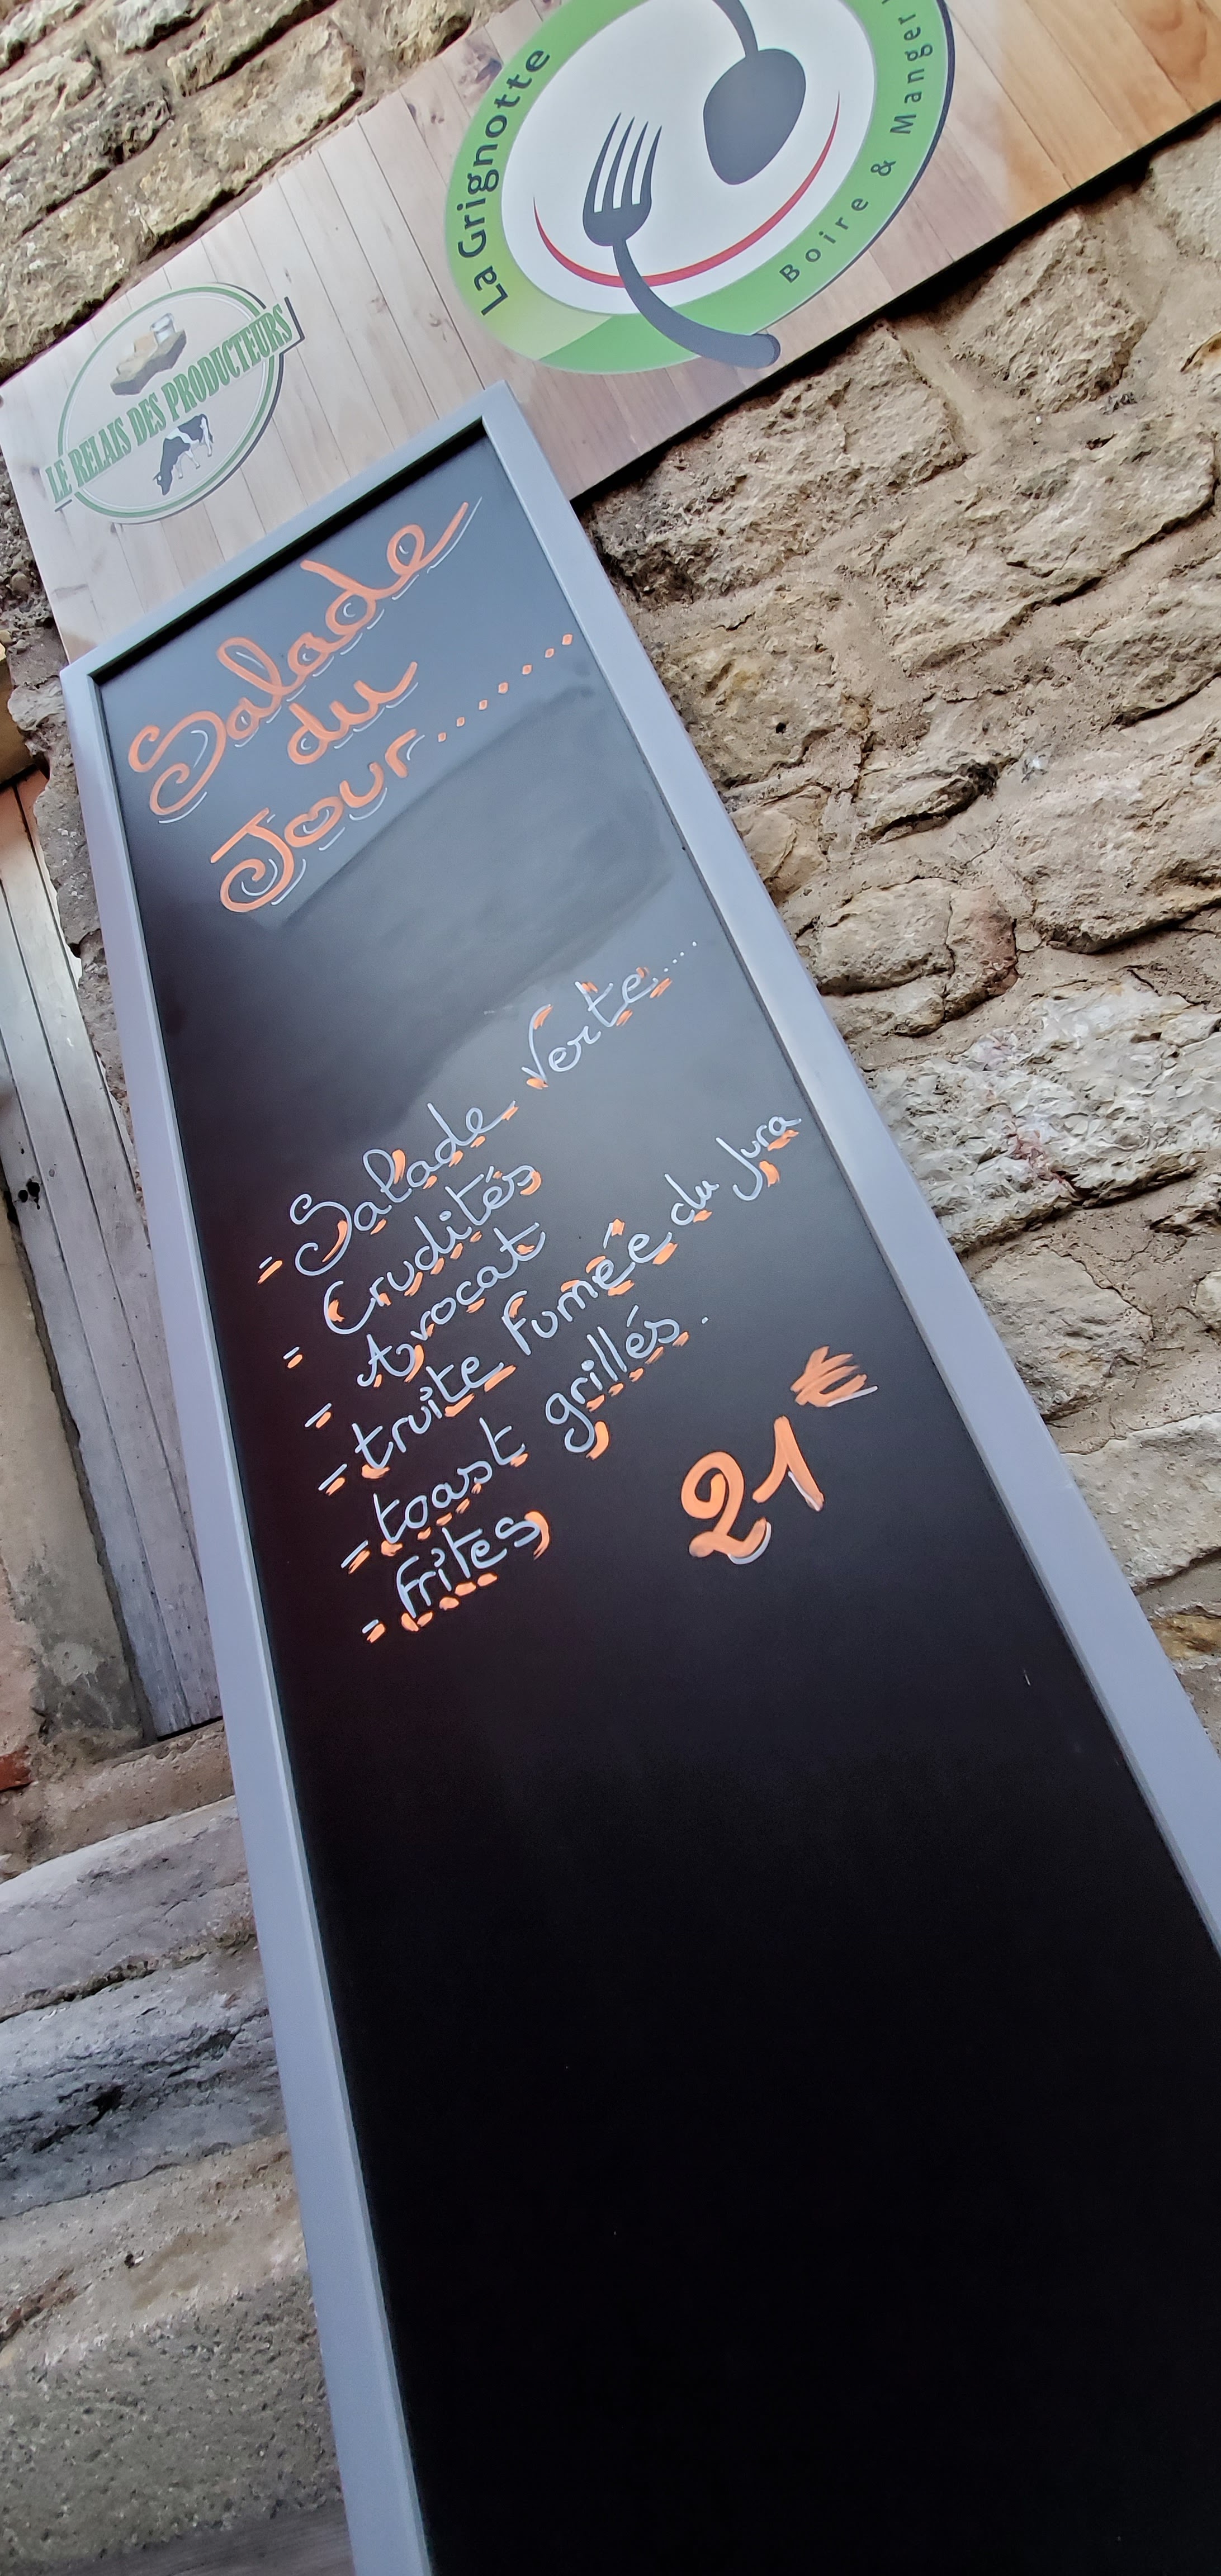 La Grignotte
Boire & Manger
LE RELAIS DES PRODUCTEURS
Salade
du
Jour.......
- Salade Verte.....
- Crudités
- Avocat
- truite Fumée du Jura
- toast grillés.
- frites
21€